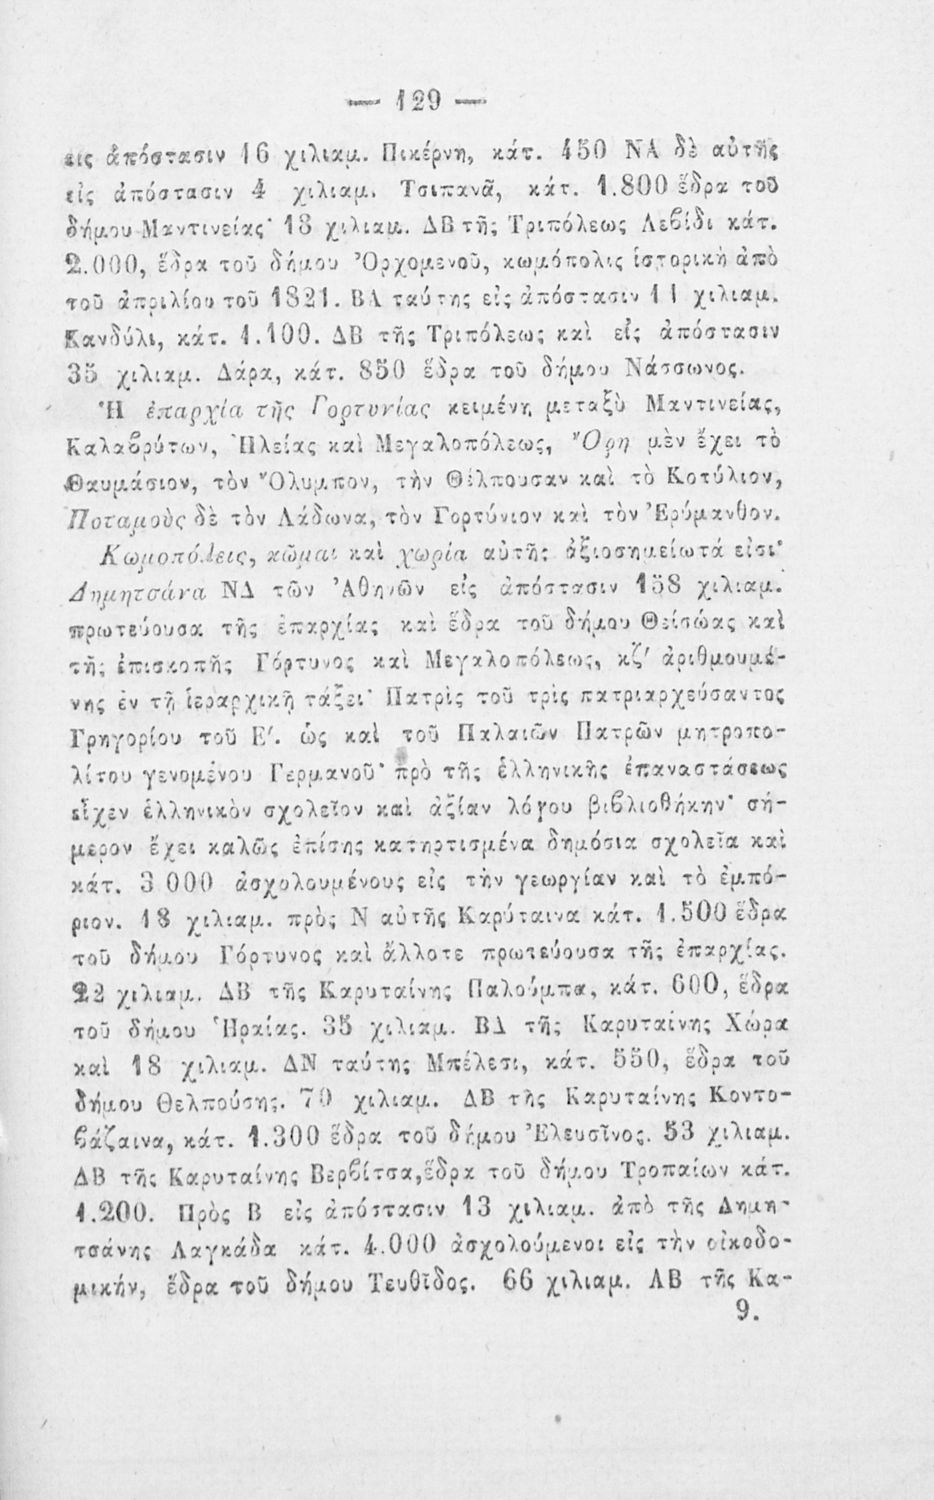 — 129 —
εις ἀπόστασιν 16 χιλιαμ. Πικέρνη, κάτ. 450 ΝΑ δὲ αὐτῆς
εἰς ἀπόστασιν 4 χιλιαμ. Τσιπανᾶ, κάτ. 1.800 ἕδρα τοῦ
δήμου Μαντινείας· 18 χιλιαμ. ΔΒ τῆς Τριπόλεως Λεβίδι κάτ.
2.000, ἕδρα τοῦ δήμου Ὀρχομενοῦ, κωμόπολις ἱστορικὴ ἀπὸ
τοῦ ἀπριλίου τοῦ 1821. ΒΑ ταύτης εἰς ἀπόστασιν 11 χιλιαμ.
Κανδύλι, κάτ. 1.100. ΔΒ τῆς Τριπόλεως καὶ εἰς ἀπόστασιν
35 χιλιαμ. Δάρα, κάτ. 850 ἕδρα τοῦ δήμου Νάσσωνος.
Ἡ ἐπαρχία τῆς Γορτυνίας κειμένη μεταξὺ Μαντινείας,
Καλαβρύτων, Ἠλείας καὶ Μεγαλοπόλεως, Ὄρη μὲν ἔχει τὸ
Θαυμάσιον, τὸν Ὄλυμπον, τὴν Θέλπουσαν καὶ τὸ Κοτύλιον,
Ποταμοὺς δὲ τὸν Λάδωνα, τὸν Γορτύνιον καὶ τὸν Ἐρύμανθον.
Κωμοπόλεις, κῶμαι καὶ χωρία αὐτῆς ἀξιοσημείωτά εἰσι·
Δημητσάνα ΝΔ τῶν Ἀθηνῶν εἰς ἀπόστασιν 158 χιλιαμ.
πρωτεύουσα τῆς ἐπαρχίας καὶ ἕδρα τοῦ δήμου Θεισώας καὶ
τῆς ἐπισκοπῆς Γόρτυνος καὶ Μεγαλοπόλεως, κζ′ ἀριθμουμέ-
νης ἐν τῇ ἱεραρχικῇ τάξει· Πατρὶς τοῦ τρὶς πατριαρχεύσαντος
Γρηγορίου τοῦ Ε′. ὡς καὶ τοῦ Παλαιῶν Πατρῶν μητροπο-
λίτου γενομένου Γερμανοῦ· πρὸ τῆς ἑλληνικῆς ἐπαναστάσεως
εἶχεν ἑλληνικὸν σχολεῖον καὶ ἀξίαν λόγου βιβλιοθήκην· σή-
μερον ἔχει καλῶς ἐπίσης κατηρτισμένα δημόσια σχολεῖα καὶ
κάτ. 3 000 ἀσχολουμένους εἰς τὴν γεωργίαν καὶ τὸ ἐμπό-
ριον. 18 χιλιαμ. πρὸς Ν αὐτῆς Καρύταινα κάτ. 1.500 ἕδρα
τοῦ δήμου Γόρτυνος καὶ ἄλλοτε πρωτεύουσα τῆς ἐπαρχίας.
22 χιλιαμ. ΔΒ τῆς Καρυταίνης Παλούμπα, κάτ. 600, ἕδρα
τοῦ δήμου Ἡραίας. 35 χιλιαμ. ΒΔ τῆς Καρυταίνης Χώρα
καὶ 18 χιλιαμ. ΔΝ ταύτης Μπέλεσι, κάτ. 550, ἕδρα τοῦ
δήμου Θελπούσης. 70 χιλιαμ. ΔΒ τῆς Καρυταίνης Κοντο-
βάζαινα, κάτ. 1.300 ἕδρα τοῦ δήμου Ἐλευσῖνος. 53 χιλιαμ.
ΔΒ τῆς Καρυταίνης Βερβίτσα, ἕδρα τοῦ δήμου Τροπαίων κάτ.
1.200. Πρὸς Β εἰς ἀπόστασιν 13 χιλιαμ. ἀπὸ τῆς Δημη-
τσάνης Λαγκάδα κάτ. 4.000 ἀσχολούμενοι εἰς τὴν οἰκοδο-
μικήν, ἕδρα τοῦ δήμου Τευθῖδος. 66 χιλιαμ. ΑΒ τῆς Κα-
9.